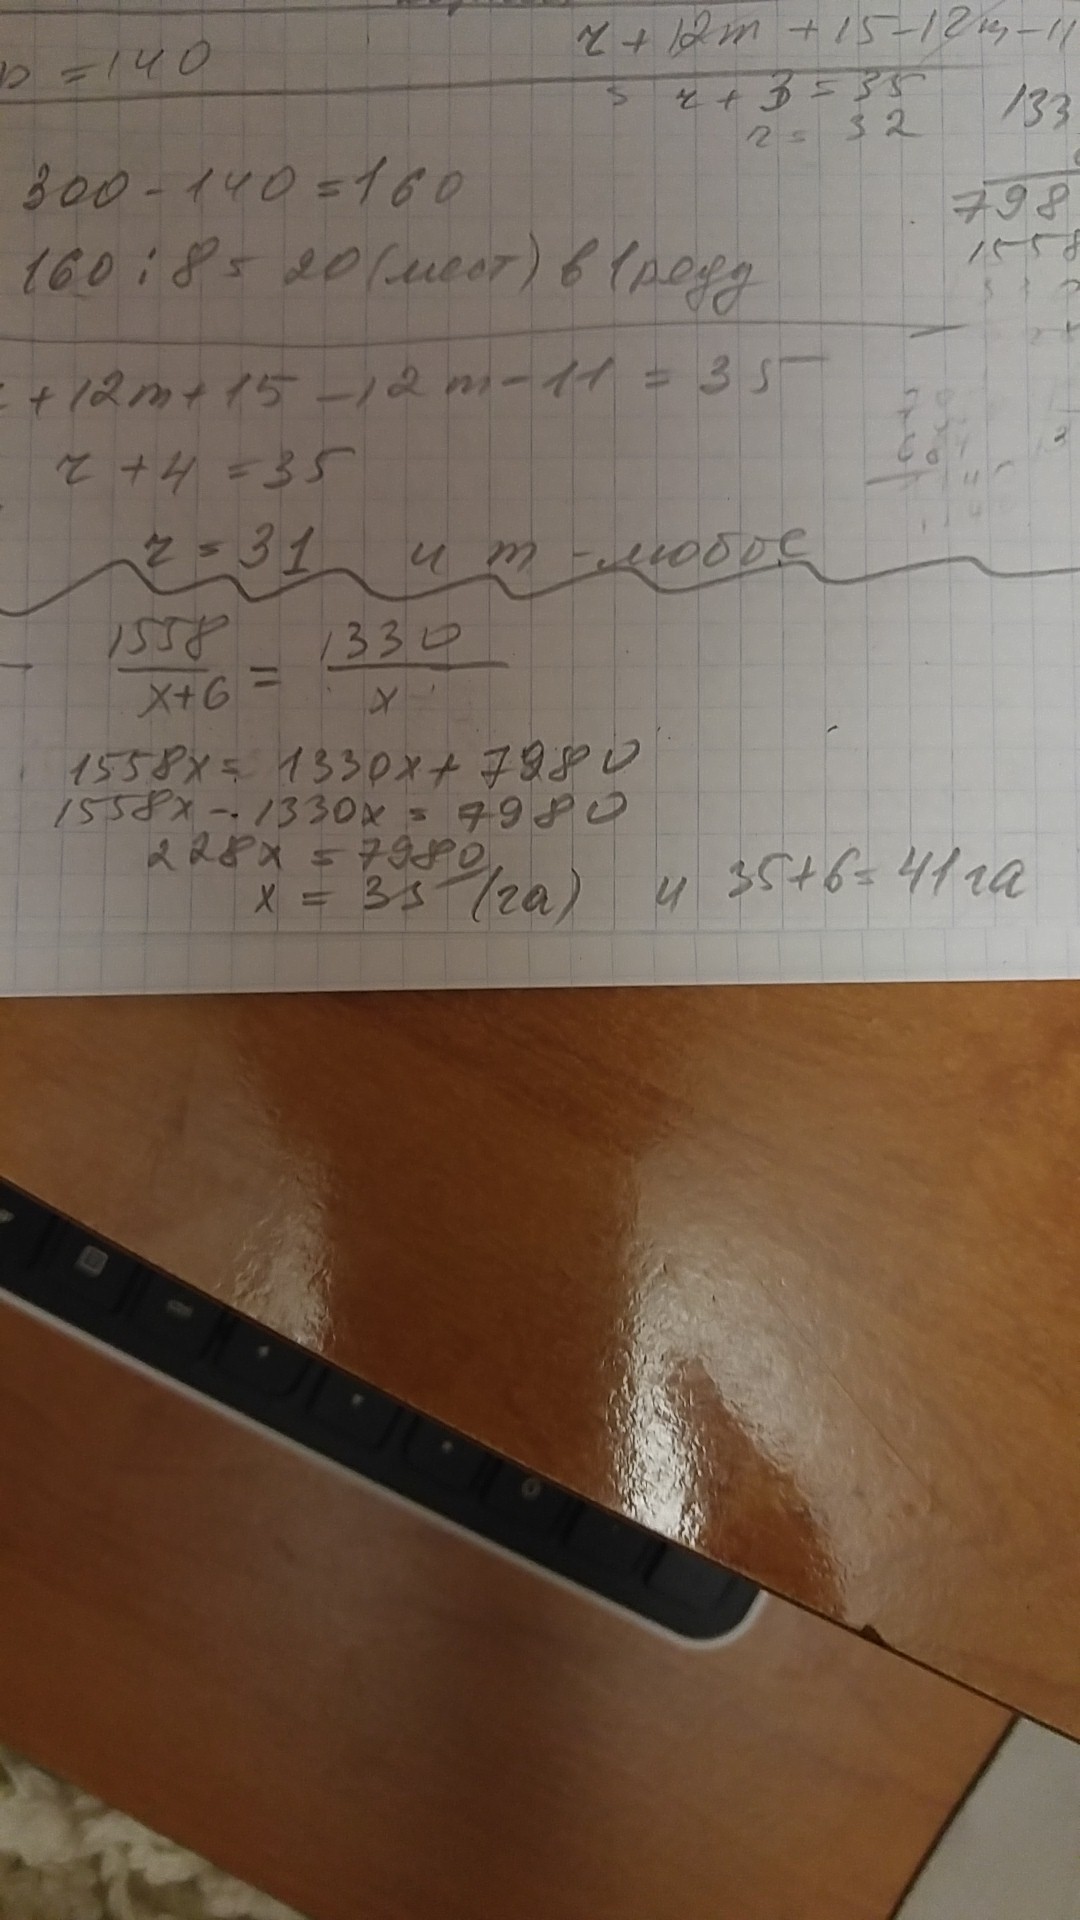 = 140
r + 12m + 15 - 12m - 11
r + 3 = 35
r = 32
133
798
1558
300 - 140 = 160
160 : 8 = 20 (мест) в 1 ряду
+ 12m + 15 - 12m - 11 = 35
r + 4 = 35
r = 31 и m - любое
1558/x+6 = 1330/x
1558x = 1330x + 7980
1558x - 1330x = 7980
228x = 7980
x = 35 (га) и 35 + 6 = 41 га